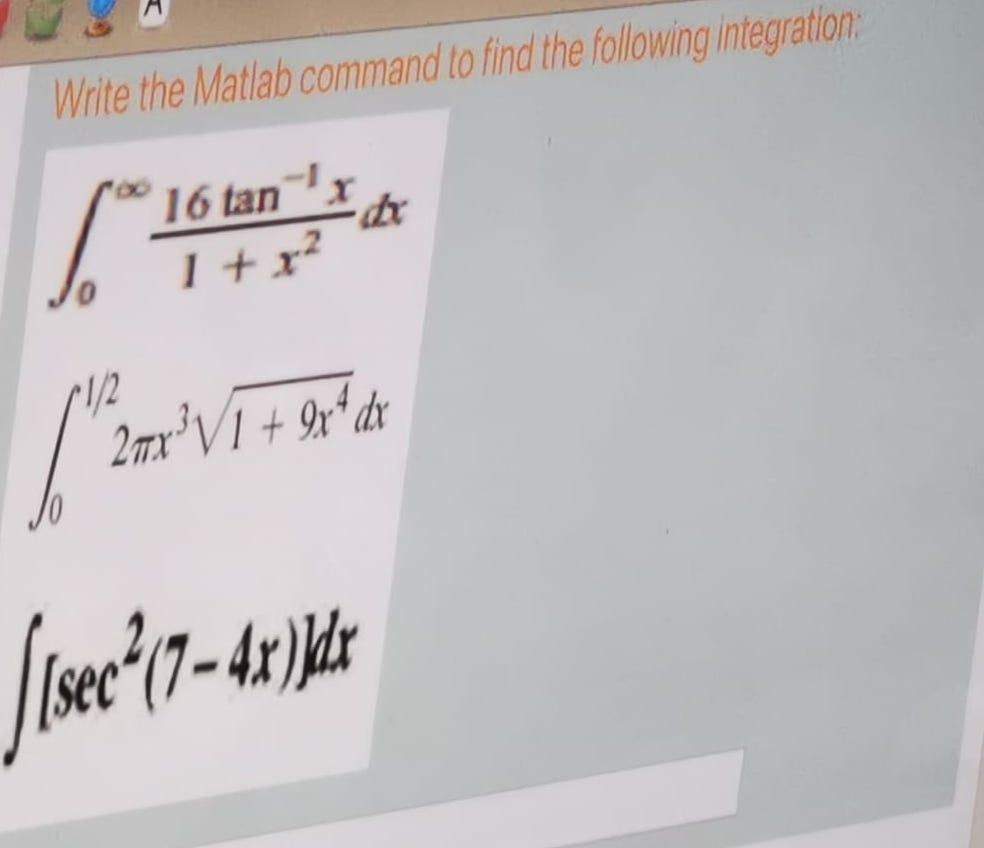 A
Write the Matlab command to find the following integration:
∫₀^∞ 16 tan⁻¹x / 1 + x² dx
∫₀^1/2 2πx³√1 + 9x⁴ dx
∫[sec²(7-4x)]dx